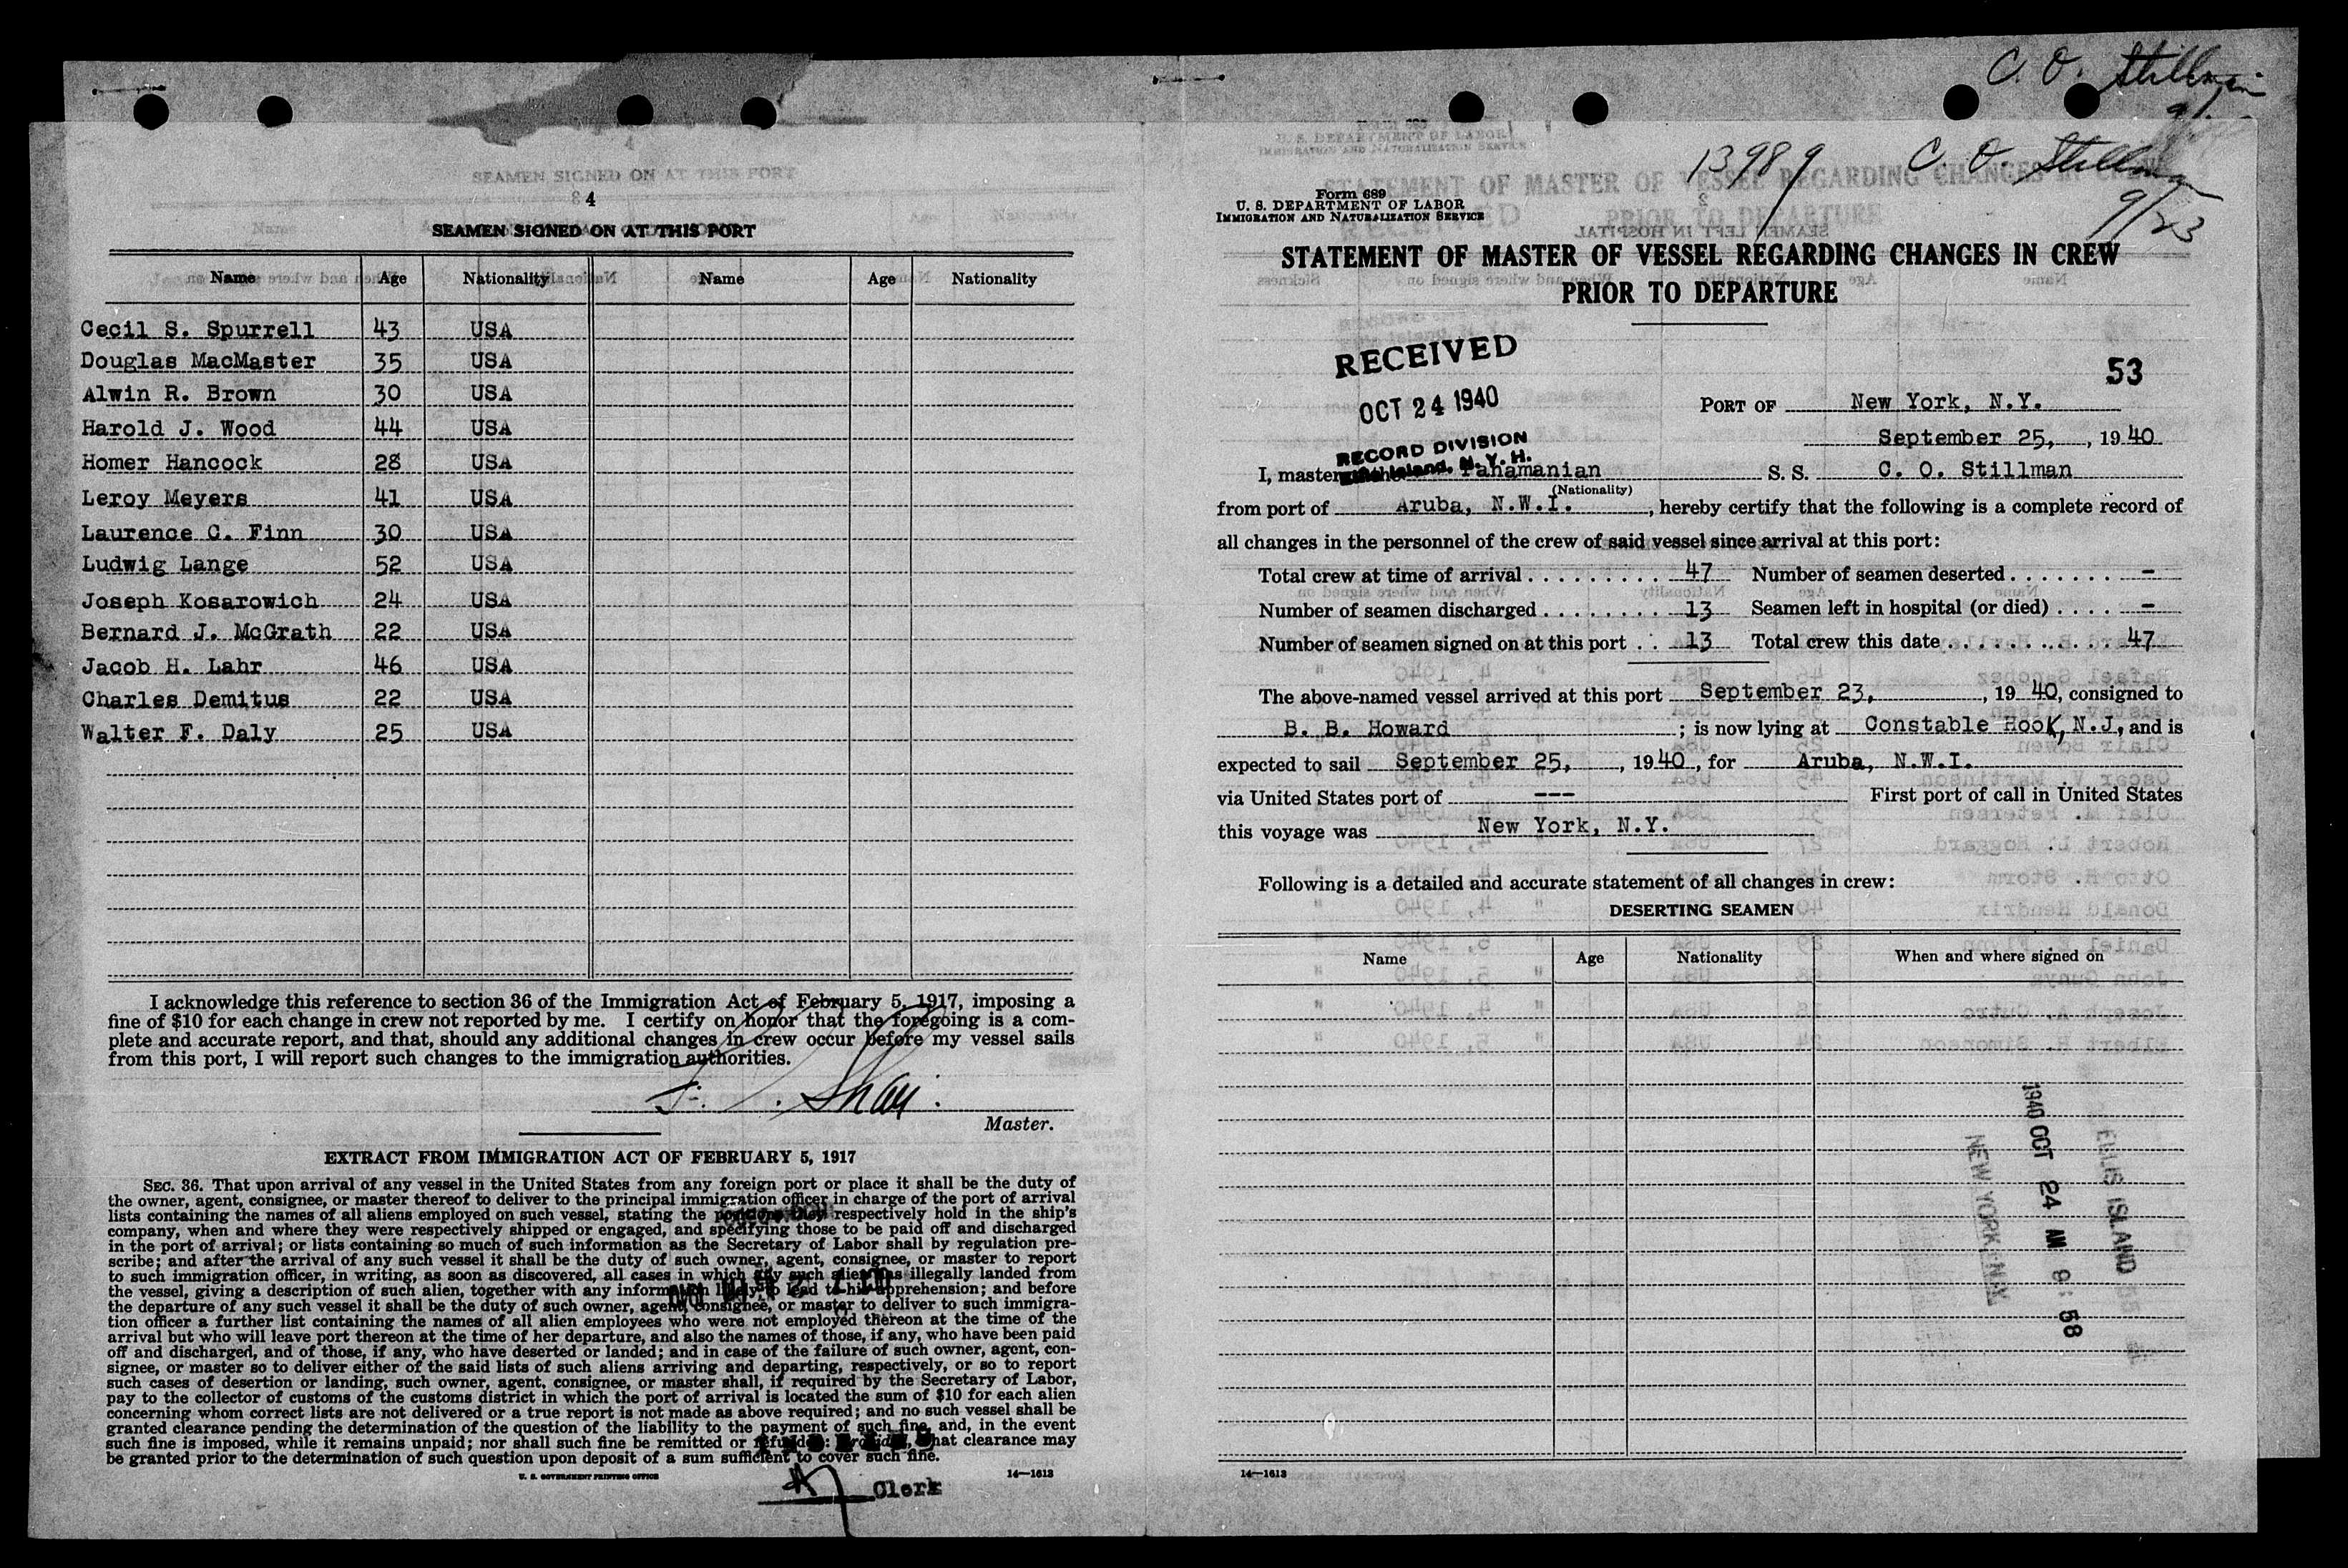 4
SEAMEN SIGNED ON AT THIS PORT
Name Age Nationality Name Age Nationality
Cecil S. Spurrell 43 USA
Douglas MacMaster 35 USA
Alwin R. Brown 30 USA
Harold J. Wood 44 USA
Homer Hancock 28 USA
Leroy Meyers 41 USA
Laurence C. Finn 30 USA
Ludwig Lange 52 USA
Joseph Kosarowich 24 USA
Bernard J. McGrath 22 USA
Jacob H. Lahr 46 USA
Charles Demitus 22 USA
Walter F. Daly 25 USA
I acknowledge this reference to section 36 of the Immigration Act of February 5, 1917, imposing a
fine of $10 for each change in crew not reported by me. I certify on honor that the foregoing is a com-
plete and accurate report, and that, should any additional changes in crew occur before my vessel sails
from this port, I will report such changes to the immigration authorities.
Master.
EXTRACT FROM IMMIGRATION ACT OF FEBRUARY 5, 1917
SEC. 36. That upon arrival of any vessel in the United States from any foreign port or place it shall be the duty of
the owner, agent, consignee, or master thereof to deliver to the principal immigration officer in charge of the port of arrival
lists containing the names of all aliens employed on such vessel, stating the positions they respectively hold in the ship's
company, when and where they were respectively shipped or engaged, and specifying those to be paid off and discharged
in the port of arrival; or lists containing so much of such information as the Secretary of Labor shall by regulation pre-
scribe; and after the arrival of any such vessel it shall be the duty of such owner, agent, consignee, or master to report
to such immigration officer, in writing, as soon as discovered, all cases in which any such alien has illegally landed from
the vessel, giving a description of such alien, together with any information likely to lead to his apprehension; and before
the departure of any such vessel it shall be the duty of such owner, agent, consignee, or master to deliver to such immigra-
tion officer a further list containing the names of all alien employees who were not employed thereon at the time of the
arrival but who will leave port thereon at the time of her departure, and also the names of those, if any, who have been paid
off and discharged, and of those, if any, who have deserted or landed; and in case of the failure of such owner, agent, con-
signee, or master so to deliver either of the said lists of such aliens arriving and departing, respectively, or so to report
such cases of desertion or landing, such owner, agent, consignee, or master shall, if required by the Secretary of Labor,
pay to the collector of customs of the customs district in which the port of arrival is located the sum of $10 for each alien
concerning whom correct lists are not delivered or a true report is not made as above required; and no such vessel shall be
granted clearance pending the determination of the question of the liability to the payment of such fine, and, in the event
such fine is imposed, while it remains unpaid; nor shall such fine be remitted or refunded: Provided, That clearance may
be granted prior to the determination of such question upon deposit of a sum sufficient to cover such fine.
U. S. GOVERNMENT PRINTING OFFICE 14—1613
Clerk
C. O. Stillman
13989 C. O. Stillman
9/23
Form 689
U. S. DEPARTMENT OF LABOR
IMMIGRATION AND NATURALIZATION SERVICE
STATEMENT OF MASTER OF VESSEL REGARDING CHANGES IN CREW
PRIOR TO DEPARTURE
RECEIVED
OCT 24 1940
RECORD DIVISION
Ellis Island, N. Y. H.
53
PORT OF New York, N.Y.
September 25, , 1940
I, master of the Panamanian S. S. C. O. Stillman
(Nationality)
from port of Aruba, N.W.I. , hereby certify that the following is a complete record of
all changes in the personnel of the crew of said vessel since arrival at this port:
Total crew at time of arrival . . . . . . . . . . 47 Number of seamen deserted . . . . . . . -
Number of seamen discharged . . . . . . . . 13 Seamen left in hospital (or died) . . . . -
Number of seamen signed on at this port . . 13 Total crew this date . . . . . . . . . . . . 47
The above-named vessel arrived at this port September 23, , 1940, consigned to
B. B. Howard ; is now lying at Constable Hook, N.J., and is
expected to sail September 25, , 1940, for Aruba, N.W.I.
via United States port of --- First port of call in United States
this voyage was New York, N.Y.
Following is a detailed and accurate statement of all changes in crew:
DESERTING SEAMEN
Name Age Nationality When and where signed on
ELLIS ISLAND
1940 OCT 24 AM 9:58
14—1613